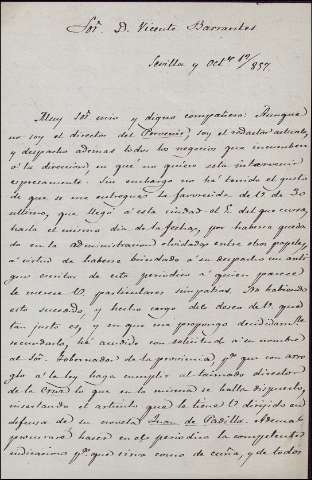 Sor. D. Vicente Barrantes
Sevilla y Octre. 10/857.
Muy Sor. mio y digno compañero: Aunque
no soy el director del Porvenir, soy el redactor
y despacho ademas todos los negocios que incumben
á la direccion, en qué no quiere esta intervenir
espresamente. Sin embargo no há tenido el gusto
de que se me entregue la favorecida de V. de 30
ultimo, que llegó á esta ciudad el 5 del que cursa,
hasta el mismo dia de la fecha, por haberse queda-
do en la administracion olvidada entre otros papeles,
á virtud de haberse brindado á su despacho un anti-
guo escritor de este periodico á quien parece
le merece V. particulares simpatias. Ha habiendo
esto sucedido, y hecho cargo del deseo de V. que
tan justo es, y en que me propongo decididamte.
secundarlo, há acudido con solicitud á su nombre
al Sor. Gobernador de la provincia pa. que con arre-
glo á la ley haga cumplir al llamado director
de la lo que en la misma se halla dispuesto,
insertando el articulo que le tiene V. dirijido en
defensa de su novela Juan de Padilla. Ademas
procuraré hacer en el periodico la competente
indicacion pa. que sirva como de cuña, y de todos